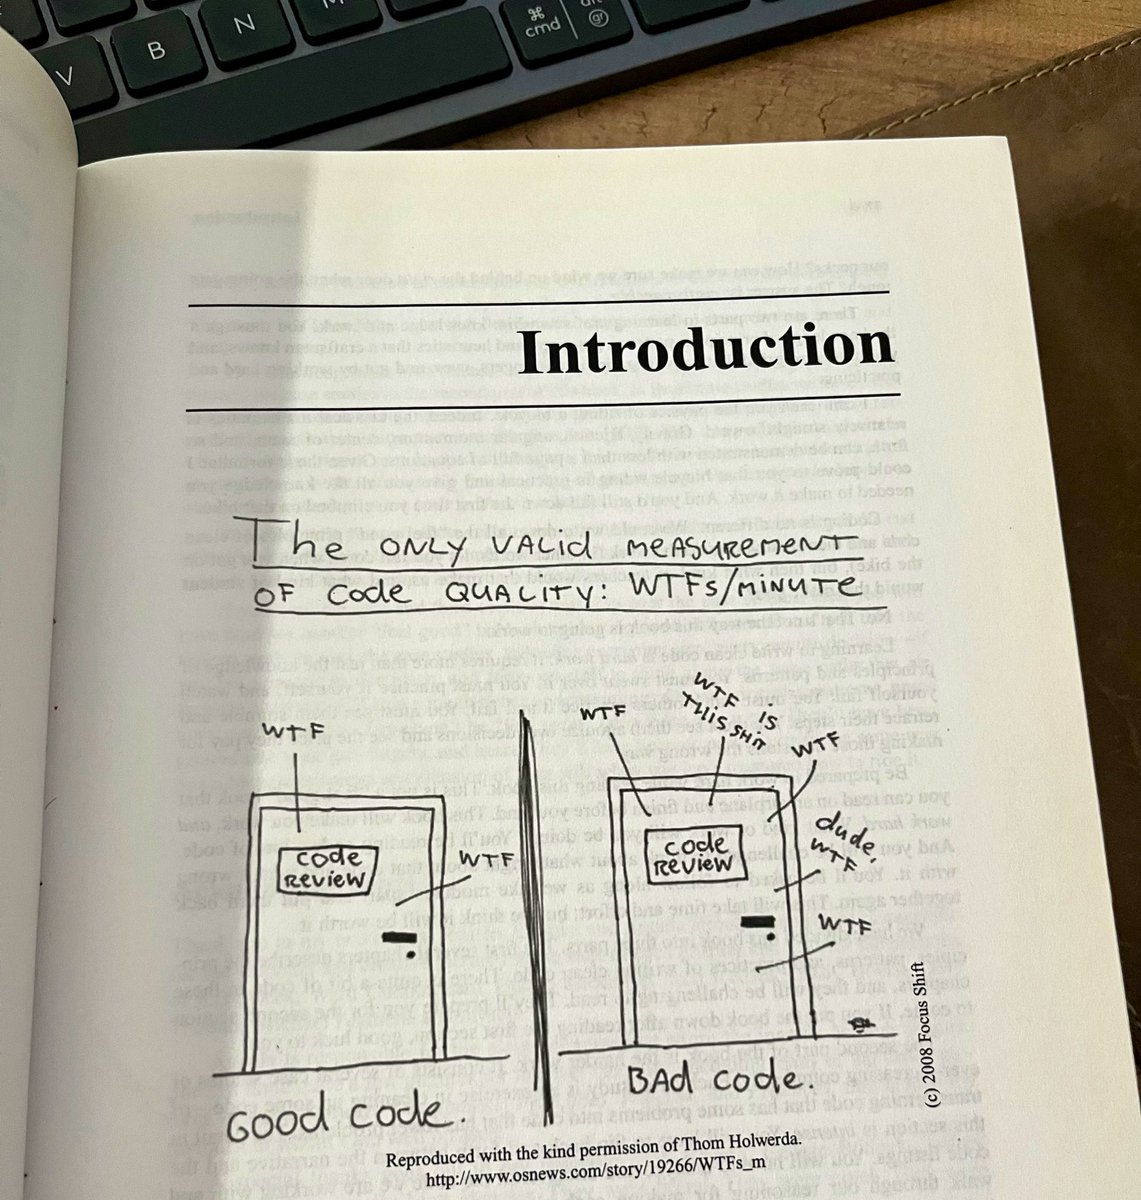 V
B
N
⌘
cmd
gr
Introduction
The ONLY VALID MEASUREMENT
OF CODE QUALITY: WTFs/MINUTE
WTF
CODE
REVIEW
WTF
GOOD CODE.
WTF
WTF IS
THIS SHIT
WTF
CODE
REVIEW
dude,
WTF
WTF
BAD CODE.
(c) 2008 Focus Shift
Reproduced with the kind permission of Thom Holwerda.
http://www.osnews.com/story/19266/WTFs_m